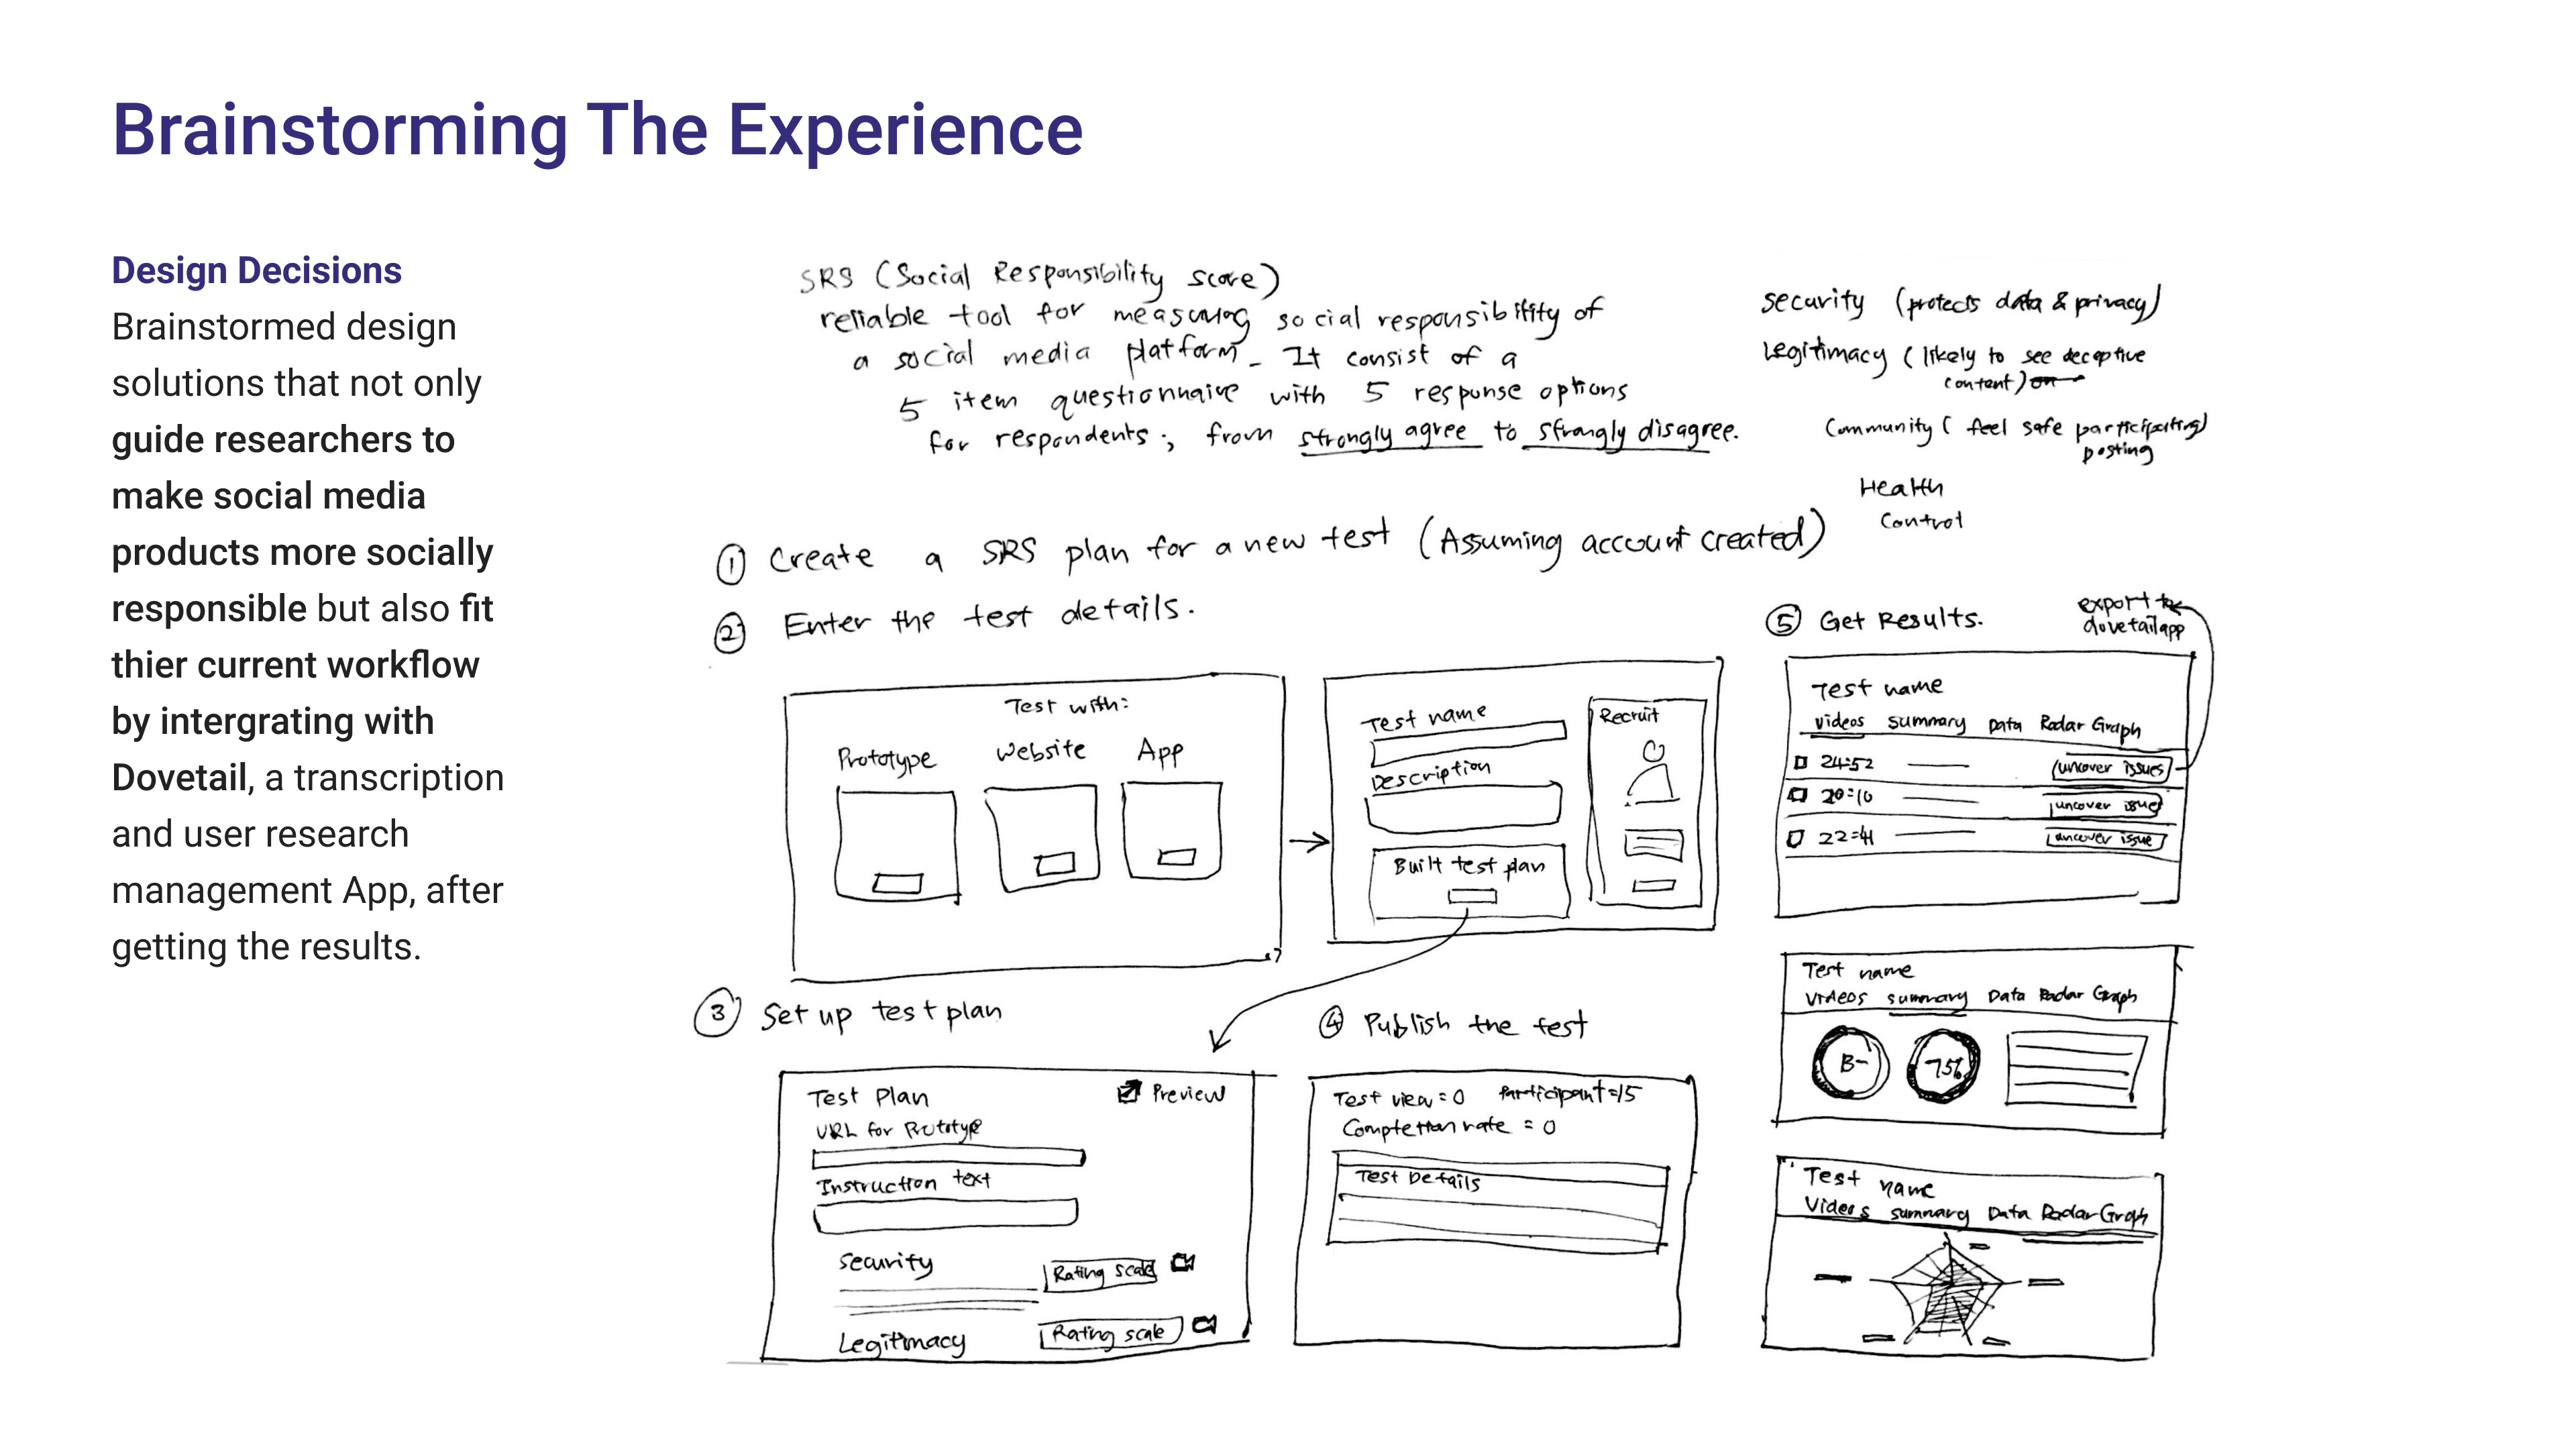 Brainstorming The Experience
Design Decisions
Brainstormed design
solutions that not only
guide researchers to
make social media
products more socially
responsible but also fit
thier current workflow
by intergrating with
Dovetail, a transcription
and user research
management App, after
getting the results.
SRS (Social Responsibility score)
reliable tool for measuring social responsibility of
a social media platform. It consist of a
5 item questionnaire with 5 response options
for respondents; from strongly agree to strongly disagree.
security (protects data & privacy)
Legitimacy (likely to see deceptive
content) on
Community ( feel safe participating)
posting
Health
Control
① Create a SRS plan for a new test (Assuming account created)
② Enter the test details.
Test with:
Prototype Website App
Test name
Description
Built test plan
Recruit
③ Set up test plan
Test Plan
Preview
URL for Prototype
Instruction text
Security
Rating scale
Legitimacy
Rating scale
④ Publish the test
Test view = 0 Participant = 15
Completion rate = 0
Test Details
⑤ Get Results.
export to
dovetailapp
Test name
Videos summary Data Radar Graph
24:52 uncover issues
20:10 uncover issue
22:41 uncover issue
Test name
Videos summary Data Radar Graph
B- 75%
Test name
Videos summary Data Radar Graph